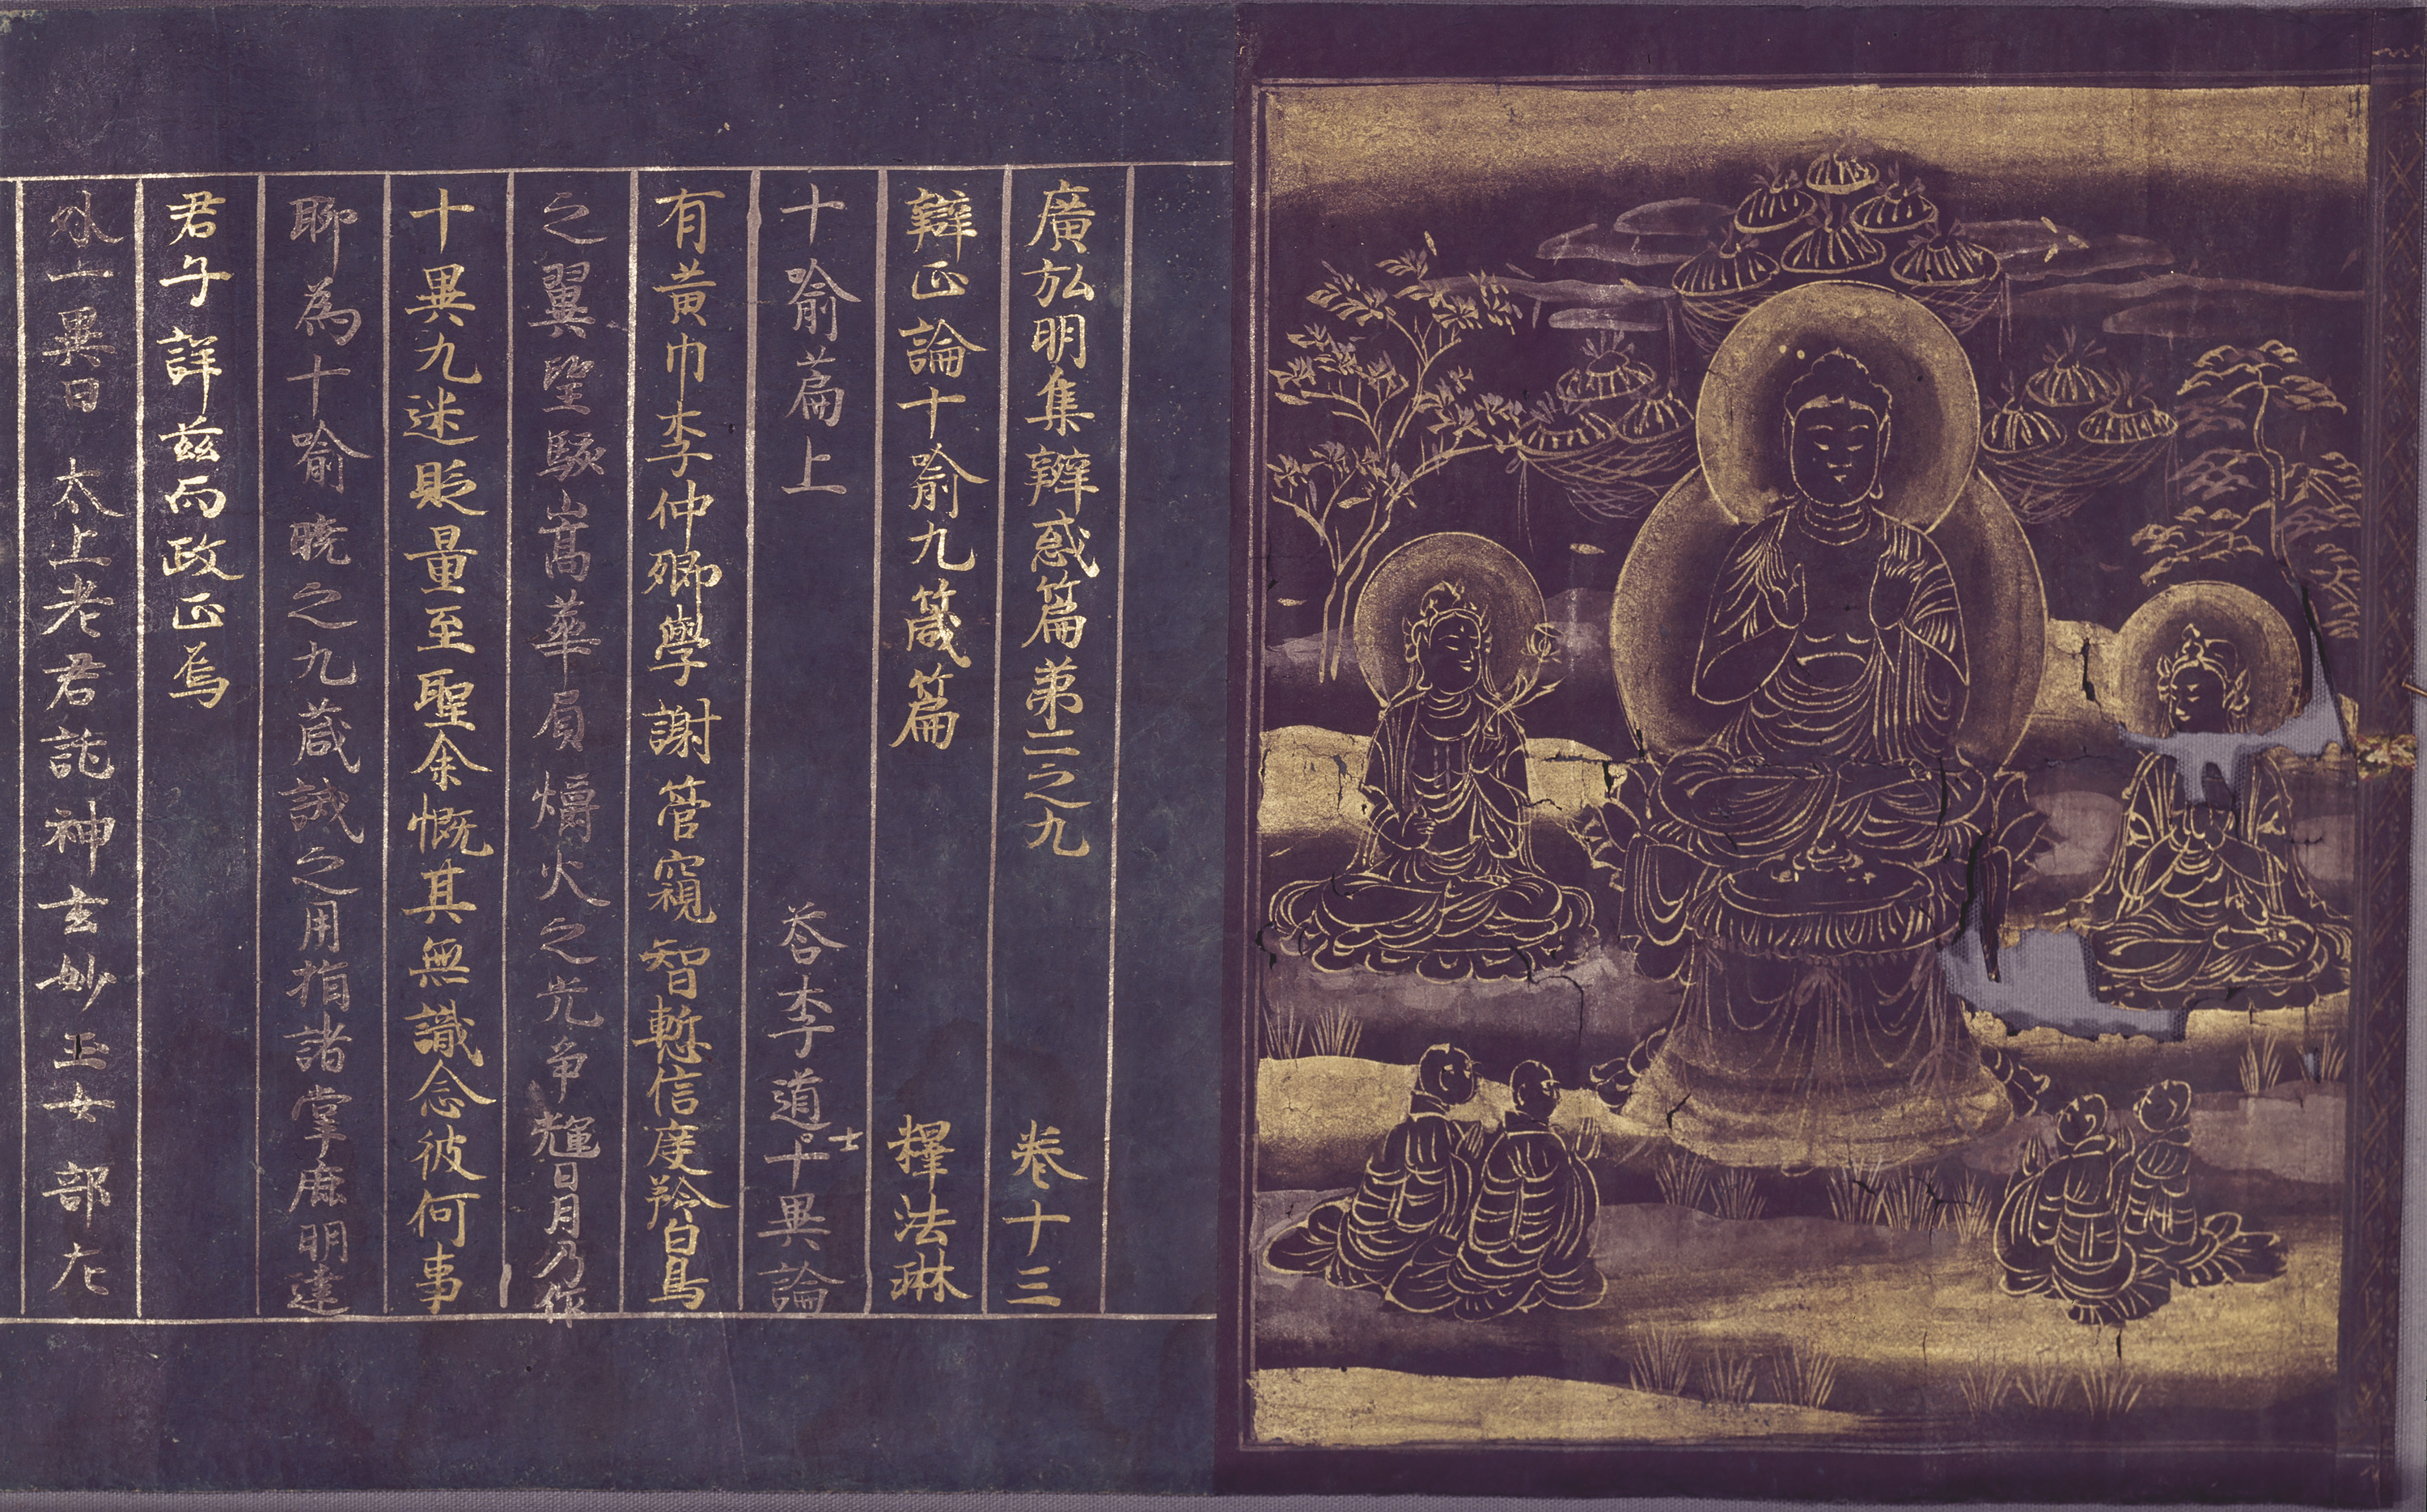 廣弘明集辯惑篇苐二之九 卷十三
辯正論十喻九箴篇 釋法琳
十喻篇上 荅李道士十異論
有黃巾李仲卿學謝管窺智慙信度矜白鳥
之翼望駭嵩華肩爝火之光爭輝日月乃作
十異九迷貶量至聖余慨其無識念彼何事
聊為十喻曉之九箴誡之用指諸掌庶明達
君子詳兹而改正焉
外一異曰 太上老君託神玄妙玉女部左